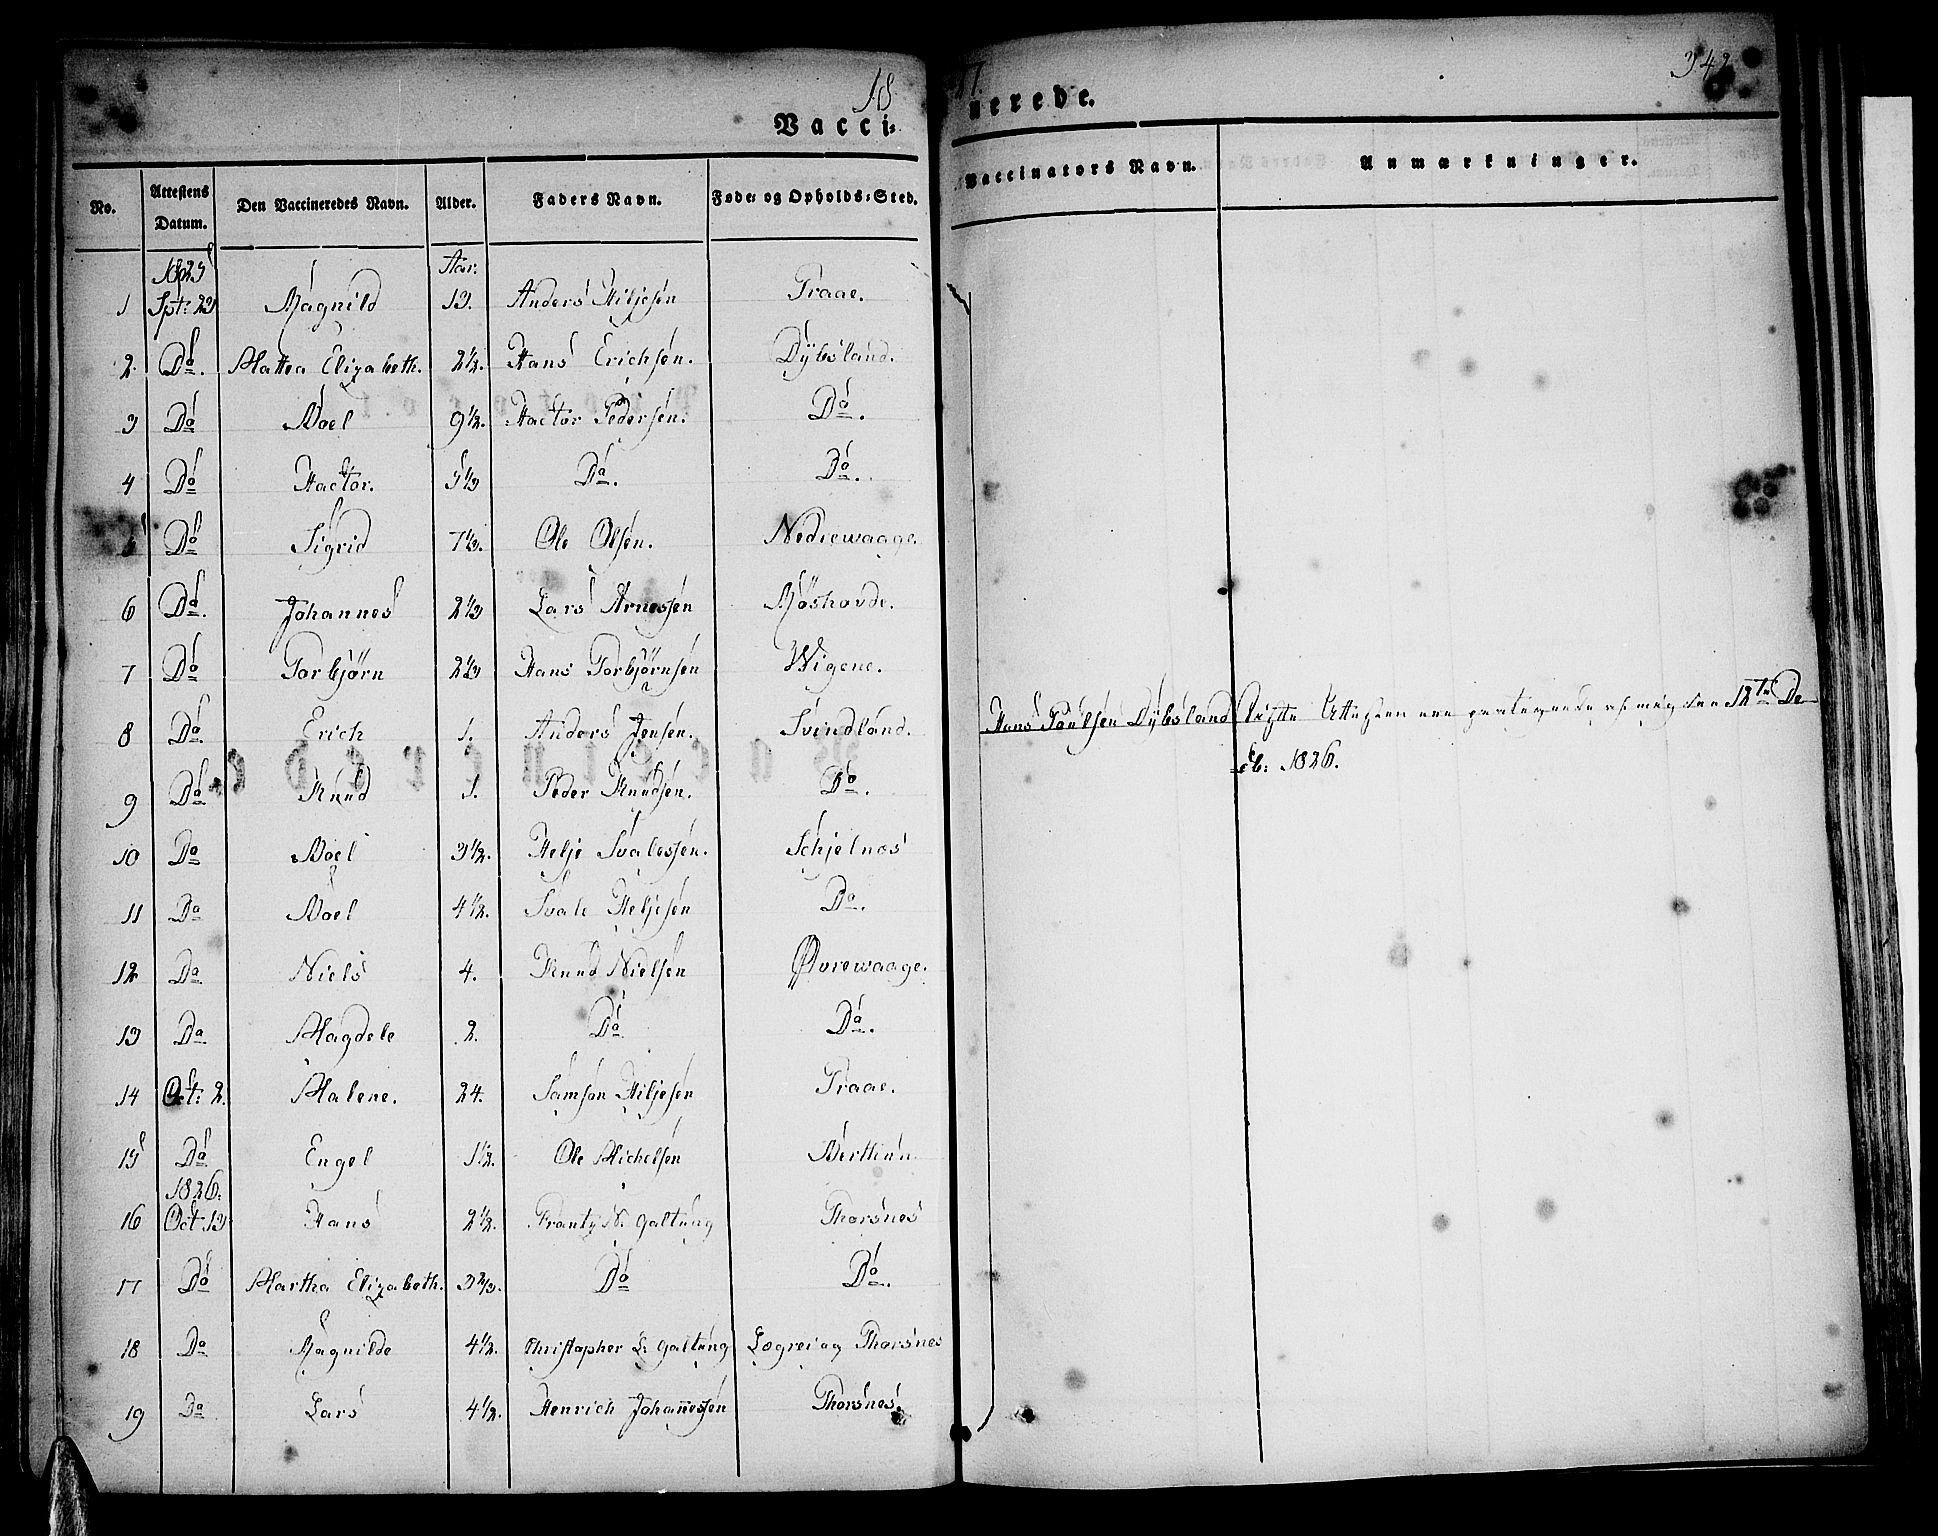 18 17. 342
Vacci= nerede.
No. Attestens Datum. Den Vaccineredes Navn. Alder. Faders Navn. Føde= og Opholds=Sted. Vaccinators Navn. Anmærkninger.
1825 Aar.
1 Spt: 23 Magnild 13. Anders Hiljesen Traae.
2. Do. Martha Elizabeth. 2½. Hans Erichsen. Dybsland.
3 Do Noel 9½. Hactor Pedersen. Do.
4 Do Hactor. 5⅓ Do. Do.
5 Do Sigrid 7⅓. Ole Olsen. Nedrewaage.
6 Do. Johannes 2⅓ Lars Arnessen Moshovde.
7 Do Torbjørn 2⅓ Hans Torbjørnsen Wigene.
8 Do. Erich 1. Anders Jensen. Svindland.
Hans Poulsen Dybsland
12te De
ceb: 1826.
9 Do Knud 1. Peder Knudsen. Do.
10 Do Noel 3½. Helje Svalessen. Schjelnes
11 Do Noel 4½. Svale Heljesen Do.
12 Do Niels 4. Knud Nielsen Øvrewaage.
13 Do Magdele 2. Do Do.
14 Oct: 2. Malene. 24. Samson Hiljesen Traae.
15 Do Engel 1½. Ole Michelsen
1826.
16 Oct: 13 Hans 2½. Frantz N. Galtung Thorsnes
17 Do Martha Elizabeth. 3⅔. Do Do.
18 Do Magnilde 4½. Christopher L: Galtung Legreiag Thorsnes
19 Do Lars 4½. Henrich Johannessen Thorsnes.